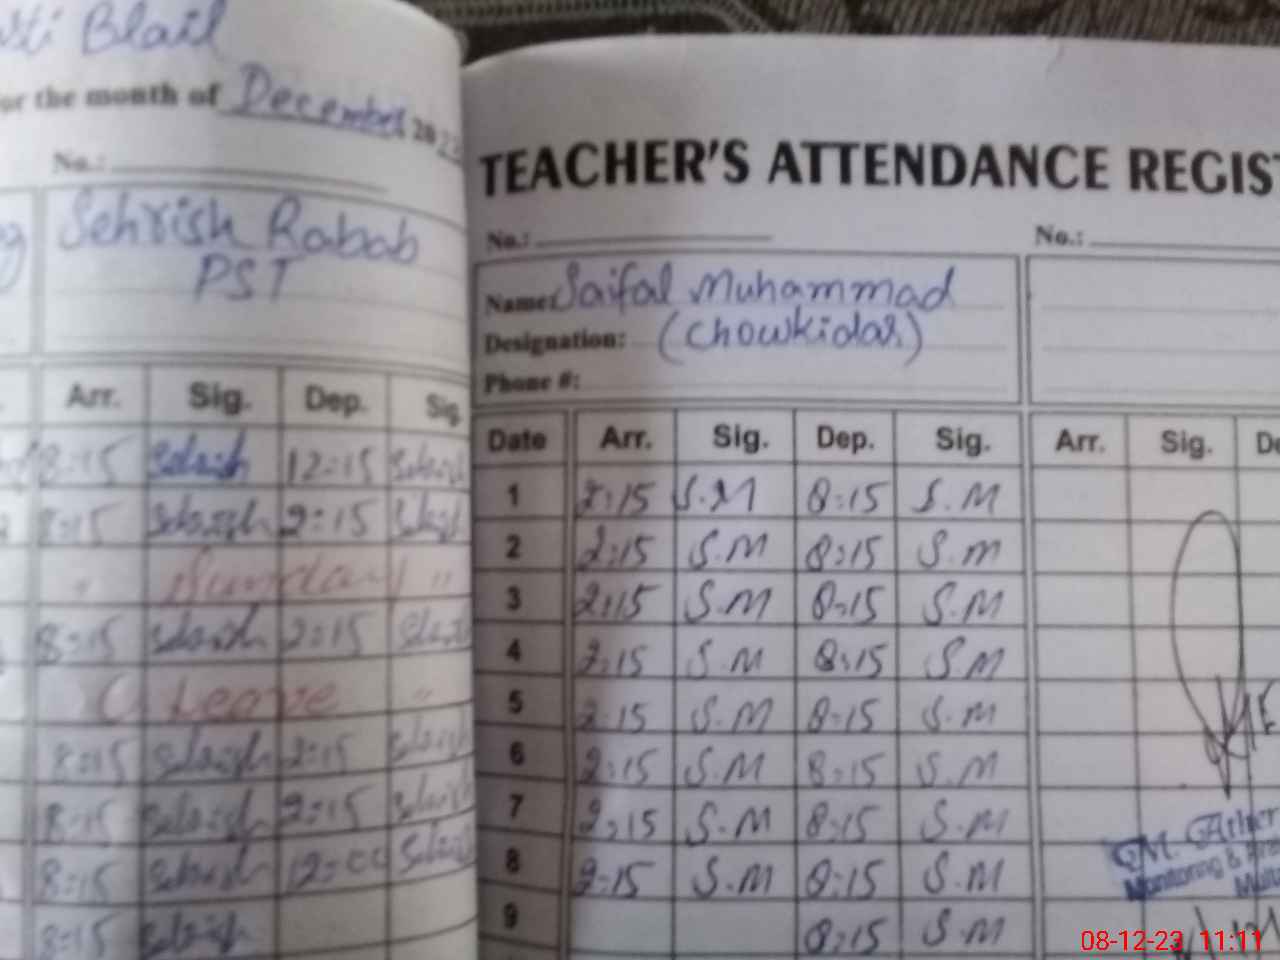 Blail
for the month of December 20
No.:
Sehrish Rabab
PST
Arr. Sig. Dep. Sig
8:15 12:15
8:15 2:15
" Sunday "
8:15 2:15
C Leave "
8:15 2:15
8:15 2:15
8:15
8:15
TEACHER'S ATTENDANCE REGIS
No.: No.:
Name: Saifal Muhammad
Designation: (Chowkidar)
Phone #:
Date Arr. Sig. Dep. Sig. Arr. Sig. De
1 2:15 S.M 8:15 S.M
2 2:15 S.M 8:15 S.M
3 2:15 S.M 8:15 S.M
4 2:15 S.M 8:15 S.M
5 2:15 S.M 8:15 S.M
6 2:15 S.M 8:15 S.M
7 2:15 S.M 8:15 S.M
8 2:15 S.M 8:15 S.M
9 8:15 S.M
M. Ather
Monitoring &
08-12-23 11:11